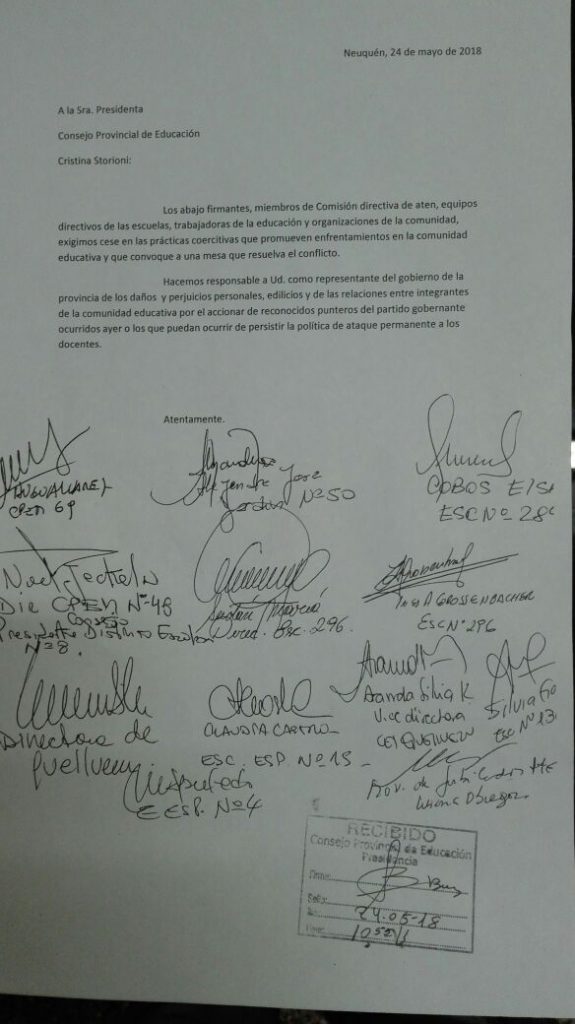 Neuquén, 24 de mayo de 2018
A la Sra. Presidenta
Consejo Provincial de Educación
Cristina Storioni:
Los abajo firmantes, miembros de Comisión directiva de aten, equipos
directivos de las escuelas, trabajadoras de la educación y organizaciones de la comunidad,
exigimos cese en las prácticas coercitivas que promueven enfrentamientos en la comunidad
educativa y que convoque a una mesa que resuelva el conflicto.
Hacemos responsable a Ud. como representante del gobierno de la
provincia de los daños y perjuicios personales, edilicios y de las relaciones entre integrantes
de la comunidad educativa por el accionar de reconocidos punteros del partido gobernante
ocurridos ayer o los que puedan ocurrir de persistir la política de ataque permanente a los
docentes.
Atentamente.
CPEM 69
Jose
Jardin Nº 50
COBOS
ESC Nº
Dir CPEM Nº 48
Presidente Distrito Escolar
Nº 8.
Consejo
Esc. 296.
GROSSENBACHER
ESC Nº 296
Directora de
CLAUDIA CASTRO
ESC. ESP. Nº 15
Aranda Silia K
Vice directora
Silvia
Esc Nº 13
E ESP. Nº 4
RECIBIDO
Consejo Provincial de Educación
Presidencia
Firma:
24-05-18
10